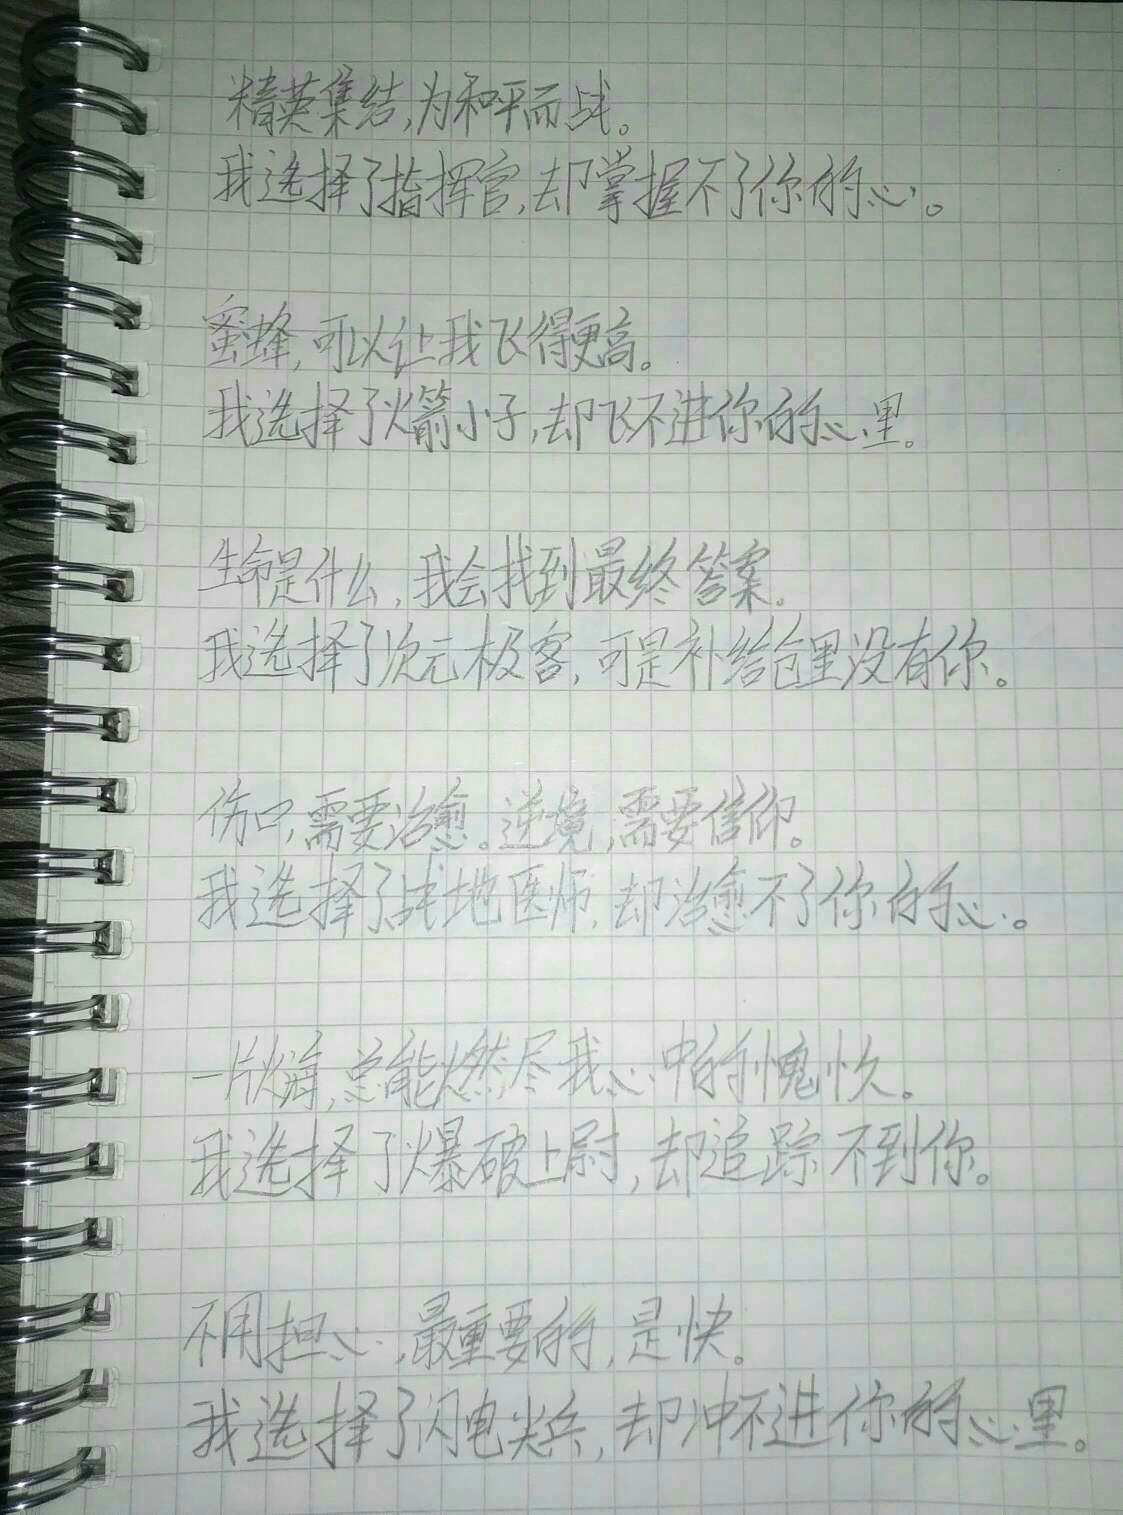 精英集结,为和平而战。
我选择了指挥官,却掌握不了你的心。
蜜蜂,可以让我飞得更高。
我选择了火箭小子,却飞不进你的心里。
生命是什么,我会找到最终答案。
我选择了次元极客,可是补给包里没有你。
伤口,需要治愈。逆境,需要信仰。
我选择了战地医师,却治愈不了你的心。
一片火海,总能燃尽我心中的愧怍。
我选择了爆破上尉,却追踪不到你。
不用担心,最重要的,是快。
我选择了闪电尖兵,却冲不进你的心里。